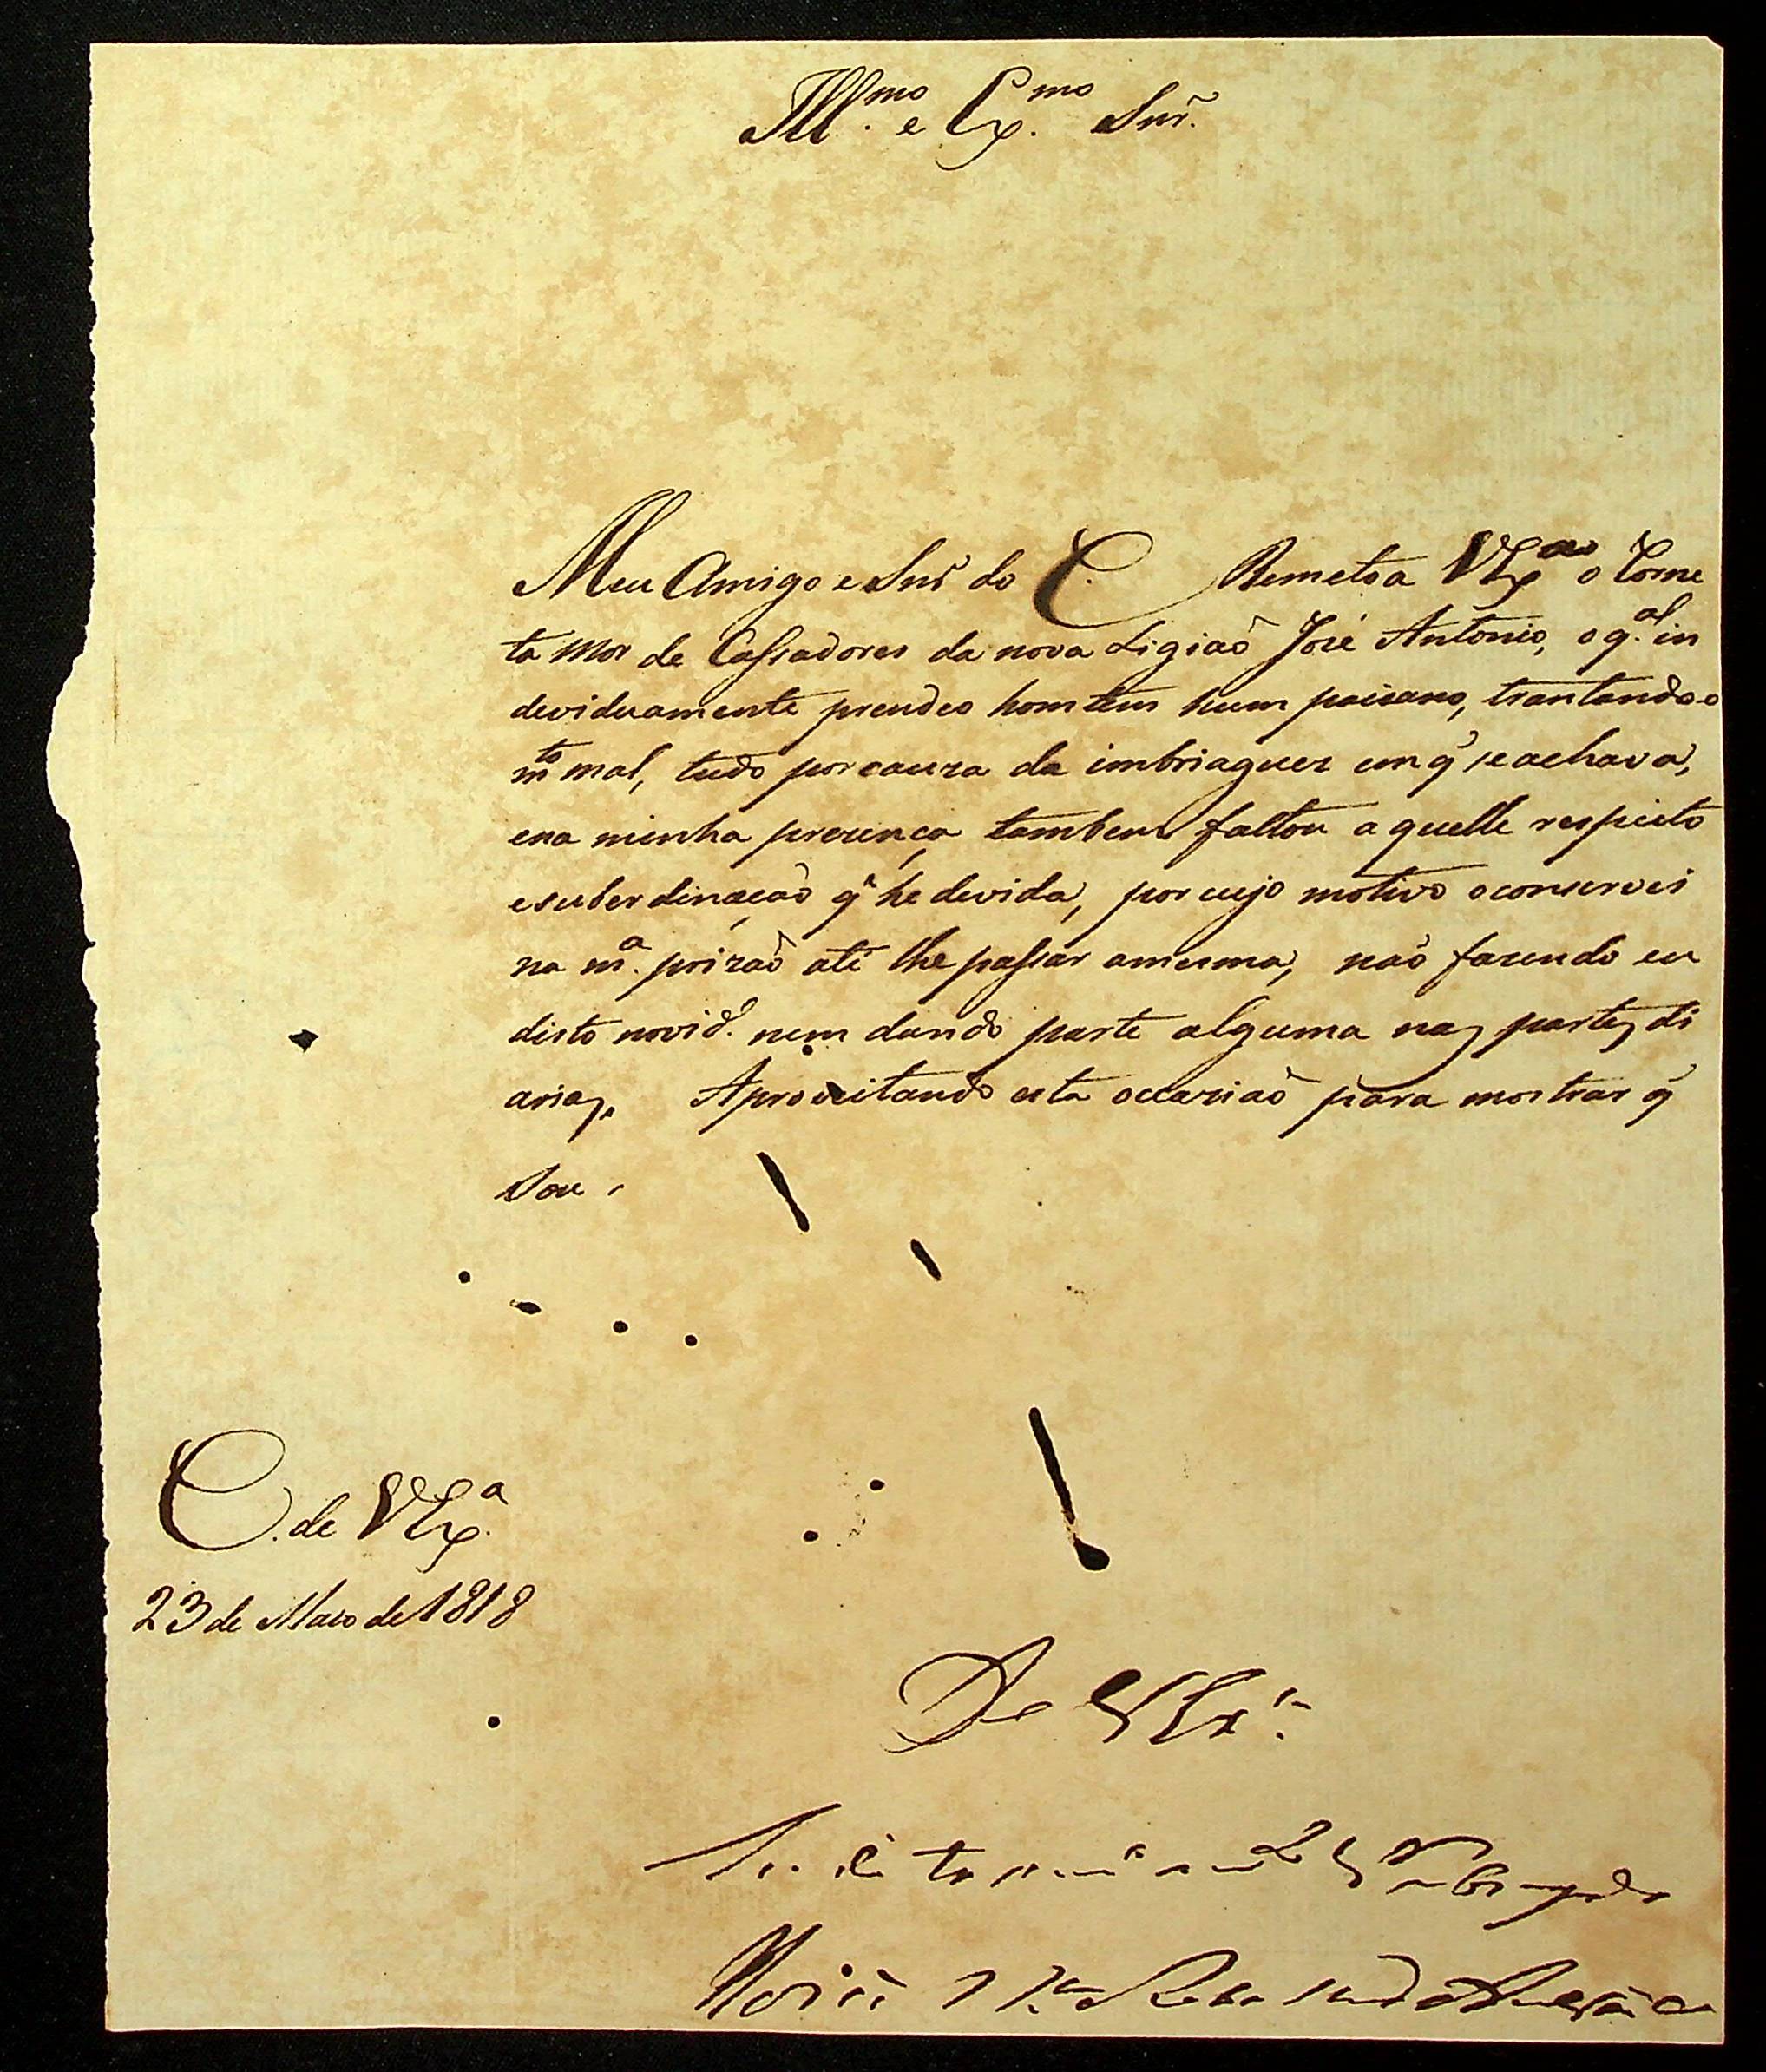 Ill.mo e Ex.mo Snr.
Meu Amigo e Snr do C. Remeto a VEx.a o Corne
ta Mor de Cassadores da nova Ligiaõ José Antonio, o q.al in
deviduamente prendeo homtem hum paisano, trantando-o
m.to mal, tudo por cauza da imbriaguez em q̃ se achava,
e na minha prezença tambem faltou aquelle respeito
e suberdinaçaõ q̃ he devida, por cujo motivo o conservei
na m.a prizaõ até lhe passar a mesma, naõ fazendo eu
disto novid.e nem dando parte alguma nas partes di
arias. Aproveitando esta occaziaõ para mostrar q̃
Sou
C. de VEx.a
23 de Maio de 1818
De VEx.a